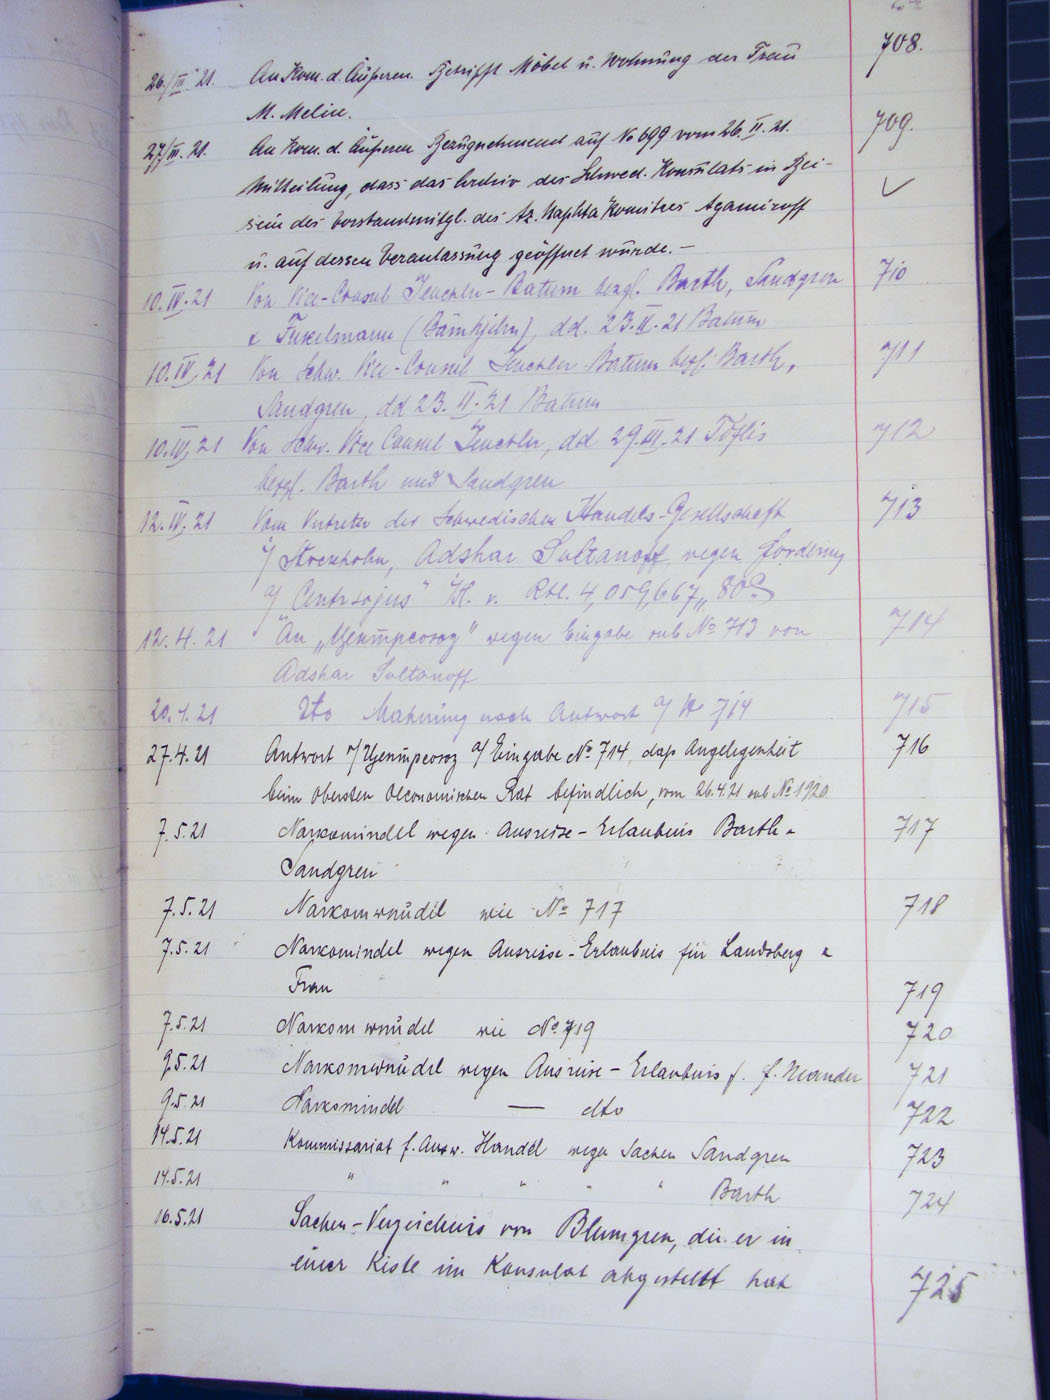 26./III. 21. An Kom. d. Äußeren. Betrifft Möbel u. Wohnung der Frau 708.
M. Melin.
27/III. 21. An Kom. d. Äußeren Bezugnehmend auf No 699 vom 26. II. 21. 709.
Mitteilung, dass das Archiv des Schwed. Konsulats in Bei-
sein des Vorstandsmitgl. des Az. Naphta Komitees Agamiroff
u. auf dessen Veranlassung geöffnet wurde. —
10. IV. 21 Von Vice-Consul Batum bezgl. Barth, Sandgren 710
& (Bäm), dd. 23. II. 21 Batum
10. IV. 21 Von Schw. Vice-Consul Batum bezgl. Barth, 711
Sandgren, dd 23. II. 21 Batum
10. IV. 21 Von Schw. Vice Consul dd 29. III. 21 Tiflis 712
bezgl. Barth und Sandgren
12. IV. 21 Vom Vertreter der Schwedischen Handels-Gesellschaft 713
i/ Stockholm, Adshar Soltanoff wegen Forderung
a/ "Centrsojus" v. Rbl. 4,059,667,, 80
12. 4. 21 An „Центросоюз" wegen Eingabe sub No 713 von 714
Adshar Soltanoff
20. 4. 21 dto Mahnung nach Antwort a/ No 714 715
27. 4. 21 Antwort v/ Центросоюз a/ Eingabe No 714, daß Angelegenheit 716
beim Obersten Oeconomischen Rat befindlich, vom 26.4.21 sub No 1920
7. 5. 21 Narkomindel wegen Ausreise-Erlaubnis Barth & 717
Sandgren
7. 5. 21 Narkomwnudel wie No 717 718
7. 5. 21 Narkomindel wegen Ausreise-Erlaubnis für Landsberg &
Frau 719
7. 5. 21 Narkomwnudel wie No 719 720
9.5. 21 Narkomwnudel wegen Ausreise-Erlaubnis f. F. Neander 721
9.5. 21 Narkomindel — dto 722
14.5.21 Kommissariat f. Ausw. Handel wegen Sachen Sandgren 723
14.5.21 " " " " " Barth 724
16.5.21 Sachen-Verzeichnis von Blumgren, die er in
einer Kiste im Konsulat abgestellt hat 725